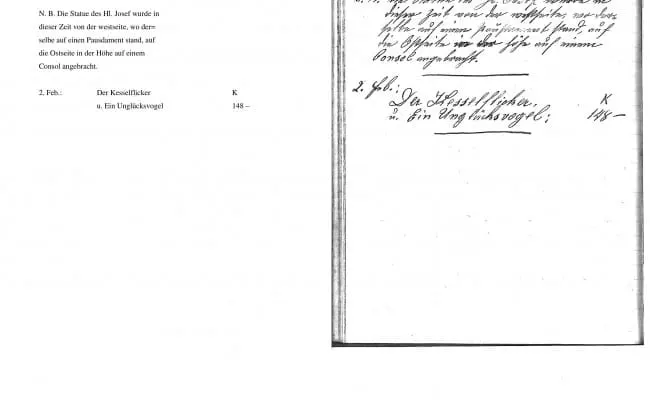 N. B. Die Statue des Hl. Josef wurde in
dieser Zeit von der westseite, wo der=
selbe auf einen Pausdament stand, auf
die Ostseite in der Höhe auf einem
Consol angebracht.
2. Feb.: Der Kesselflicker K
u. Ein Unglücksvogel 148 –
dieser Zeit von der westseite, wo der=
selbe auf einen Pausdament stand, auf
die Ostseite in der Höhe auf einem
Consol angebracht.
2. Feb.:
Der Kesselflicker, K
u. Ein Unglücksvogel; 148 –